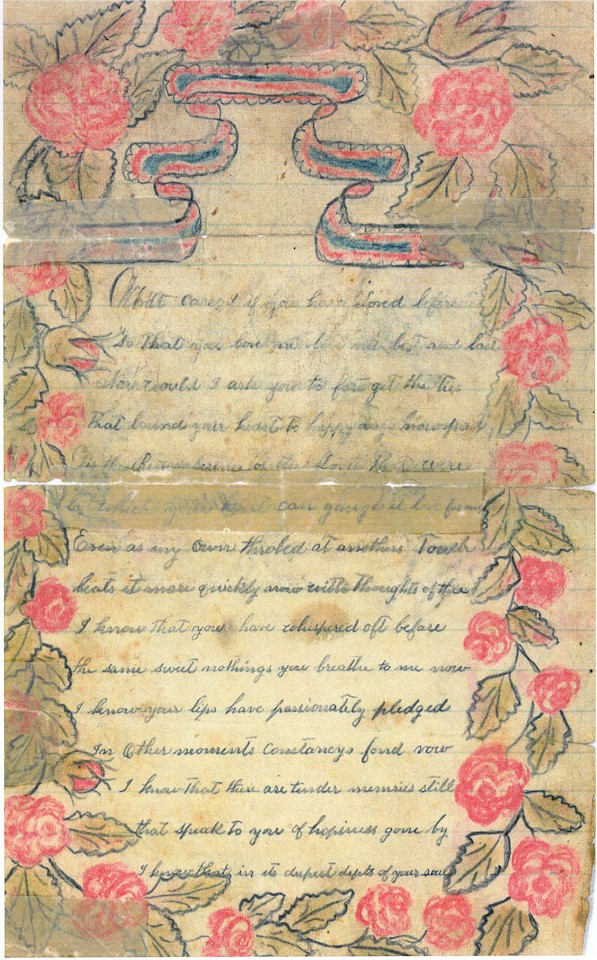 if you have loved before
So that you love me me best and last
Nor would I ask you to forget the ties
That bound your heart to happy days now past,
the of the that were
to which can it be
Even as my own throbed at anothers Touch
beats it more quickly now with thoughts of thee
I know that you have whispered oft before
the same sweet nothings you breathe to me now
I know your lips have passionately pledged
In Other moments Constancys fond vow
I know That there are tender memries still
that speak to you of hopiness gone by
I know that, in its deepest depts of your soul